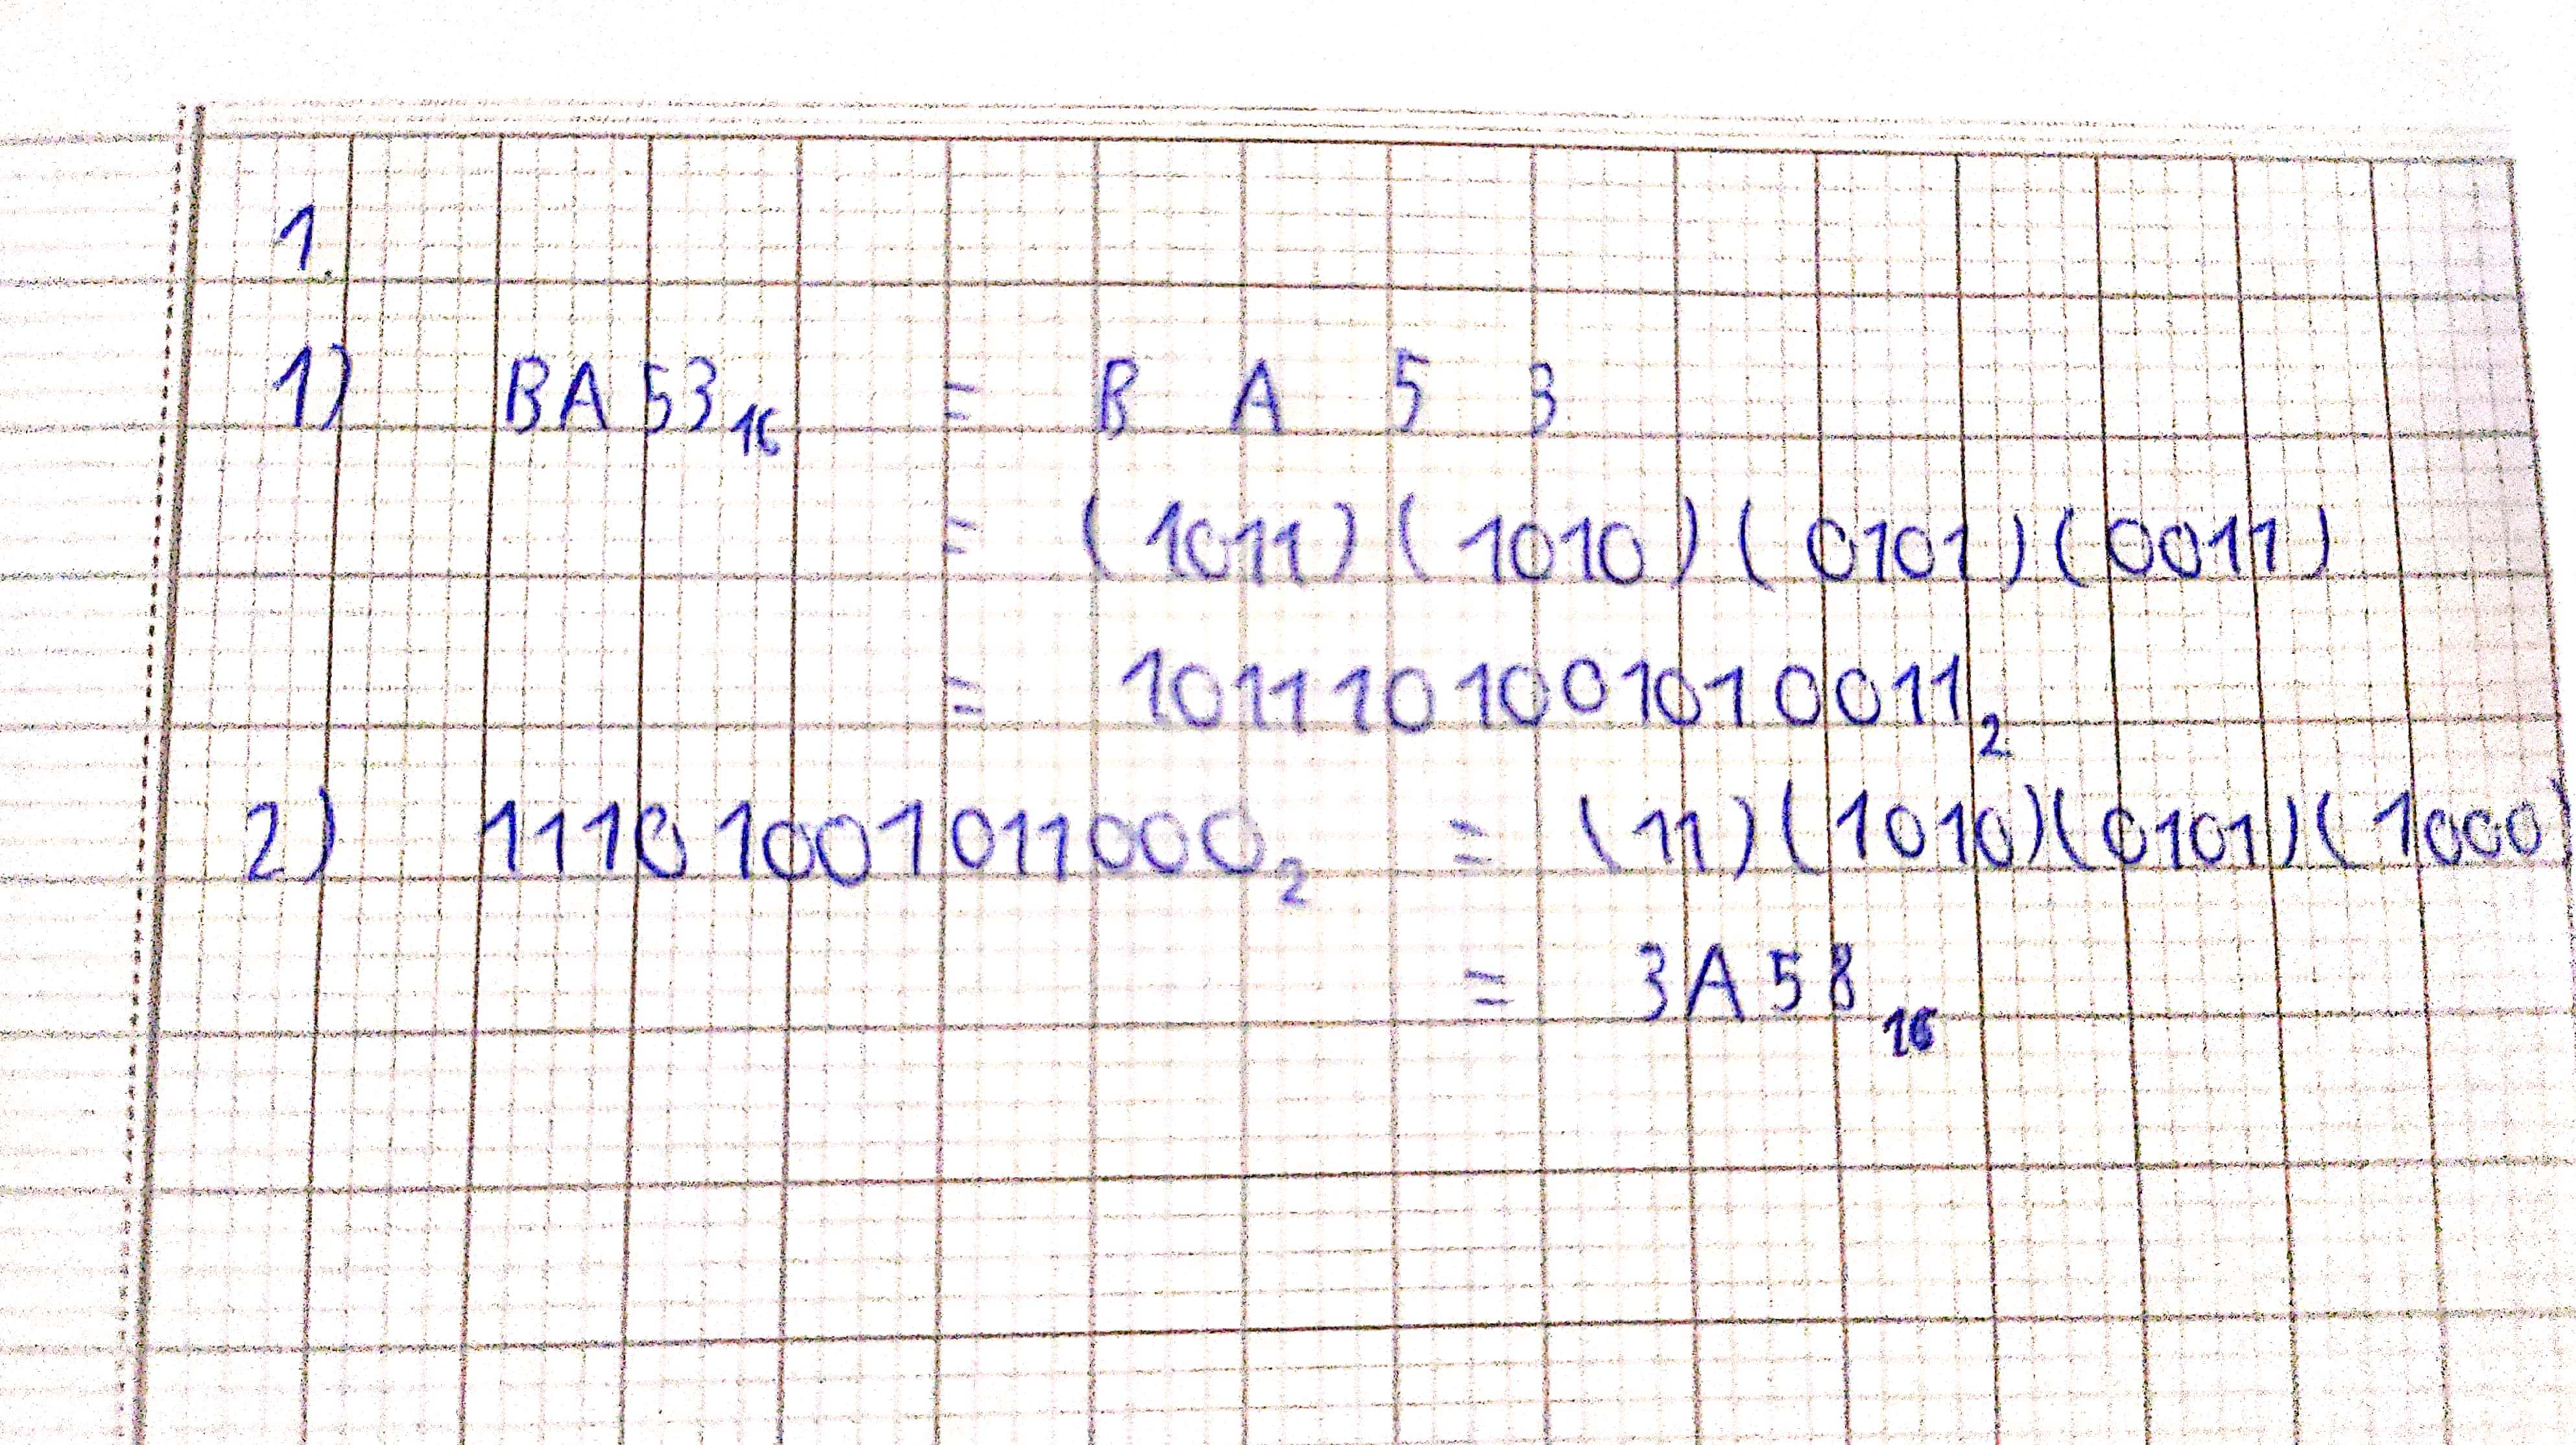 1.
1) BA53₁₆ = B A 5 3
= (1011)(1010)(0101)(0011)
= 1011101001010011₂
2) 11101001011000₂ = (11)(1010)(0101)(1000)
= 3A58₁₆